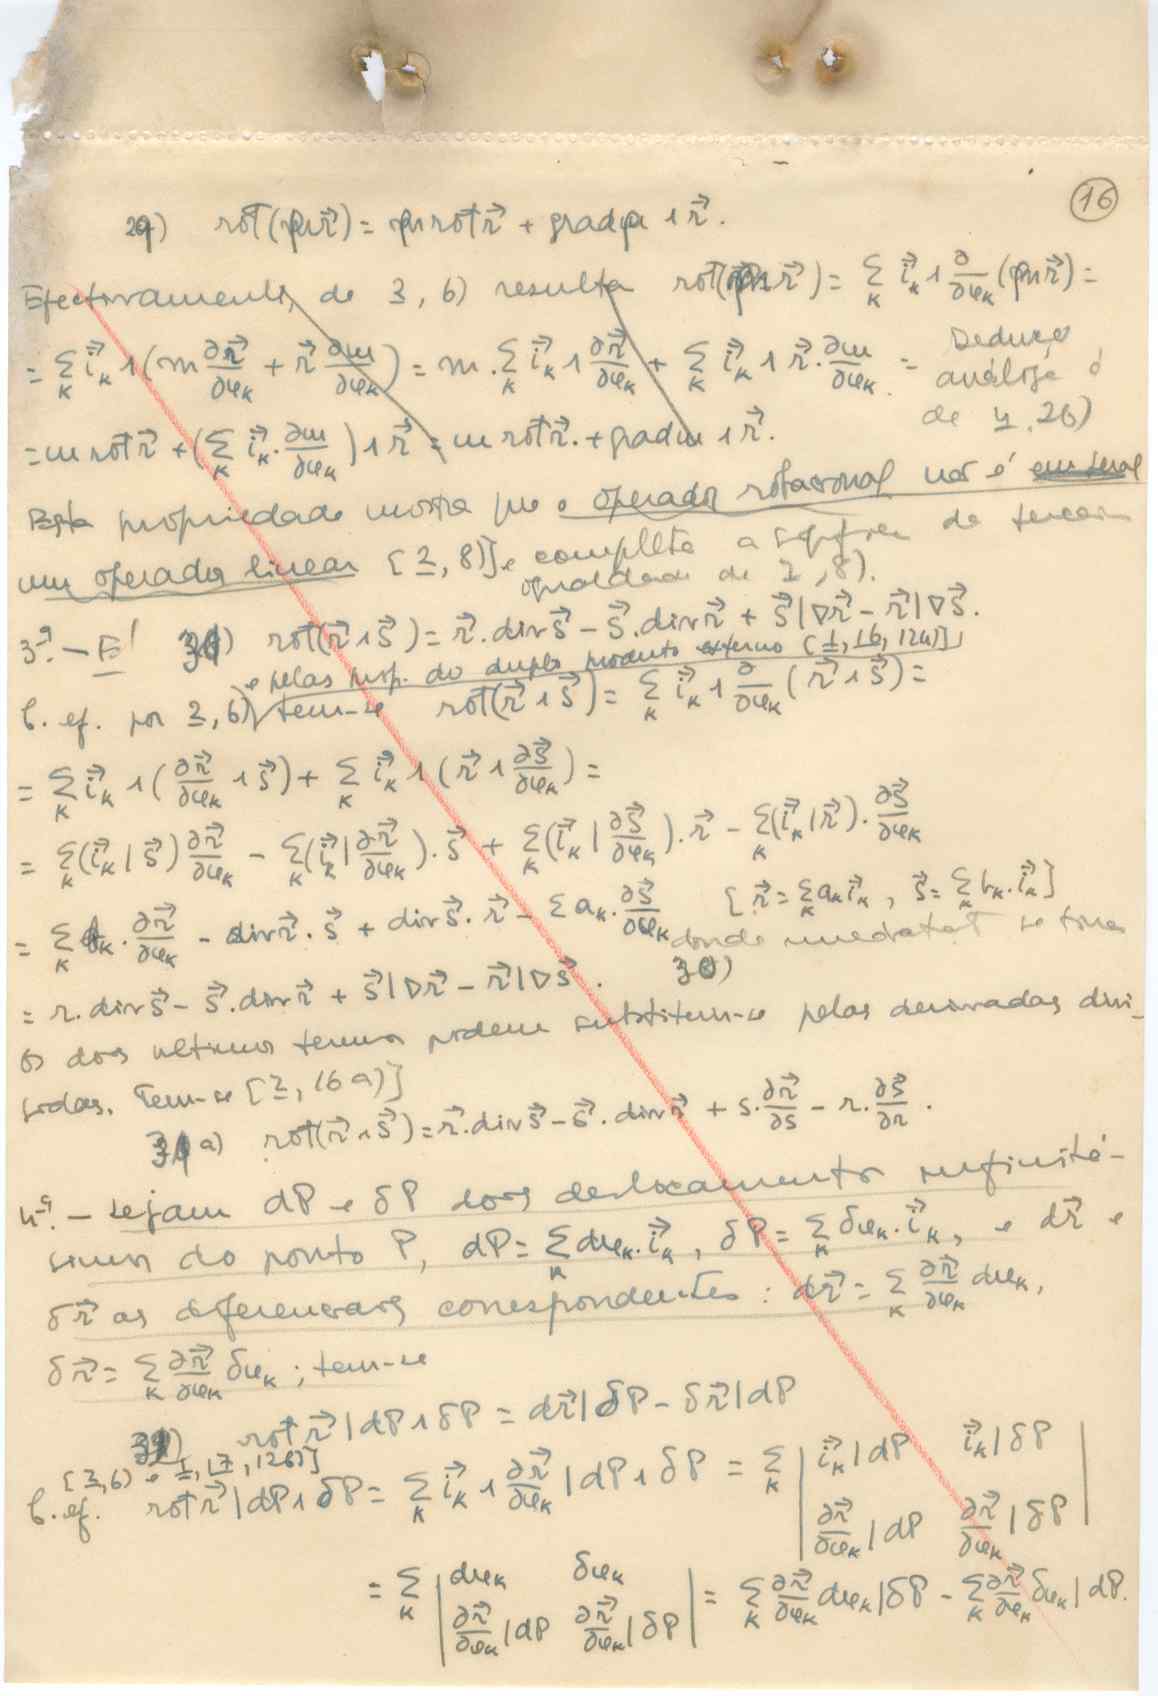 16
29) rot(m r⃗) = m rot r⃗ + grad m ∧ r⃗.
Efectivamente, de 3, 6) resulta rot(m r⃗) = Σ_K i⃗_K ∧ ∂/∂x_K (m r⃗) =
= Σ_K i⃗_K ∧ (m ∂r⃗/∂x_K + r⃗ ∂m/∂x_K) = m . Σ_K i⃗_K ∧ ∂r⃗/∂x_K + Σ_K i⃗_K ∧ r⃗ . ∂m/∂x_K =
Dedução
análoga à
de 4, 26)
= m rot r⃗ + (Σ_K i⃗_K . ∂m/∂x_K) ∧ r⃗ = m rot r⃗ . + grad m ∧ r⃗.
Esta propriedade mostra que o operador rotacional não é em geral
um operador linear [2, 8)] e completa a de terceira
igualdade de 2, 8).
3ª. – É 30) rot(r⃗ ∧ s⃗) = r⃗ . div s⃗ – s⃗ . div r⃗ + s⃗ | ∇r⃗ – r⃗ | ∇s⃗.
e pelas prop. do duplo produto externo [1, 16, 124)],
C. ef. por 3, 6) tem-se rot(r⃗ ∧ s⃗) = Σ_K i⃗_K ∧ ∂/∂x_K (r⃗ ∧ s⃗) =
= Σ_K i⃗_K ∧ (∂r⃗/∂x_K ∧ s⃗) + Σ_K i⃗_K ∧ (r⃗ ∧ ∂s⃗/∂x_K) =
= Σ_K (i⃗_K | s⃗) ∂r⃗/∂x_K – Σ_K (i⃗_K | ∂r⃗/∂x_K) . s⃗ + Σ_K (i⃗_K | ∂s⃗/∂x_K) . r⃗ – Σ_K (i⃗_K | r⃗) . ∂s⃗/∂x_K
= Σ_K b_K . ∂r⃗/∂x_K – div r⃗ . s⃗ + div s⃗ . r⃗ – Σ a_K . ∂s⃗/∂x_K [r⃗ = Σ_K a_K i⃗_K , s⃗ = Σ_K b_K . i⃗_K]
donde imediatat se tira
30)
= r . div s⃗ – s⃗ . div r⃗ + s⃗ | ∇r⃗ – r⃗ | ∇s⃗ .
Os dois ultimos termos podem substituir-se pelas derivadas diri-
gidas. Tem-se [2, 16 a)]
31 a) rot(r⃗ ∧ s⃗) = r⃗ . div s⃗ – s⃗ . div r⃗ + s . ∂r⃗/∂s – r . ∂s⃗/∂r .
4ª. – Sejam dP e δP dois deslocamentos infinité-
simos do ponto P, dP = Σ_K dx_K . i⃗_K , δP = Σ_K δx_K . i⃗_K , e dr⃗ e
δr⃗ as diferenciais correspondentes : dr⃗ = Σ_K ∂r⃗/∂x_K dx_K ,
δr⃗ = Σ_K ∂r⃗/∂x_K δx_K ; tem-se
31) rot r⃗ | dP ∧ δP = dr⃗ | δP – δr⃗ | dP
[3, 6) e 1, 17, 126)]
C. ef. rot r⃗ | dP ∧ δP = Σ_K i⃗_K ∧ ∂r⃗/∂x_K | dP ∧ δP = Σ_K | i⃗_K | dP i⃗_K | δP |
| ∂r⃗/∂x_K | dP ∂r⃗/∂x_K | δP |
= Σ_K | dx_K δx_K |
| ∂r⃗/∂x_K | dP ∂r⃗/∂x_K | δP | = Σ_K ∂r⃗/∂x_K dx_K | δP – Σ_K ∂r⃗/∂x_K δx_K | dP.